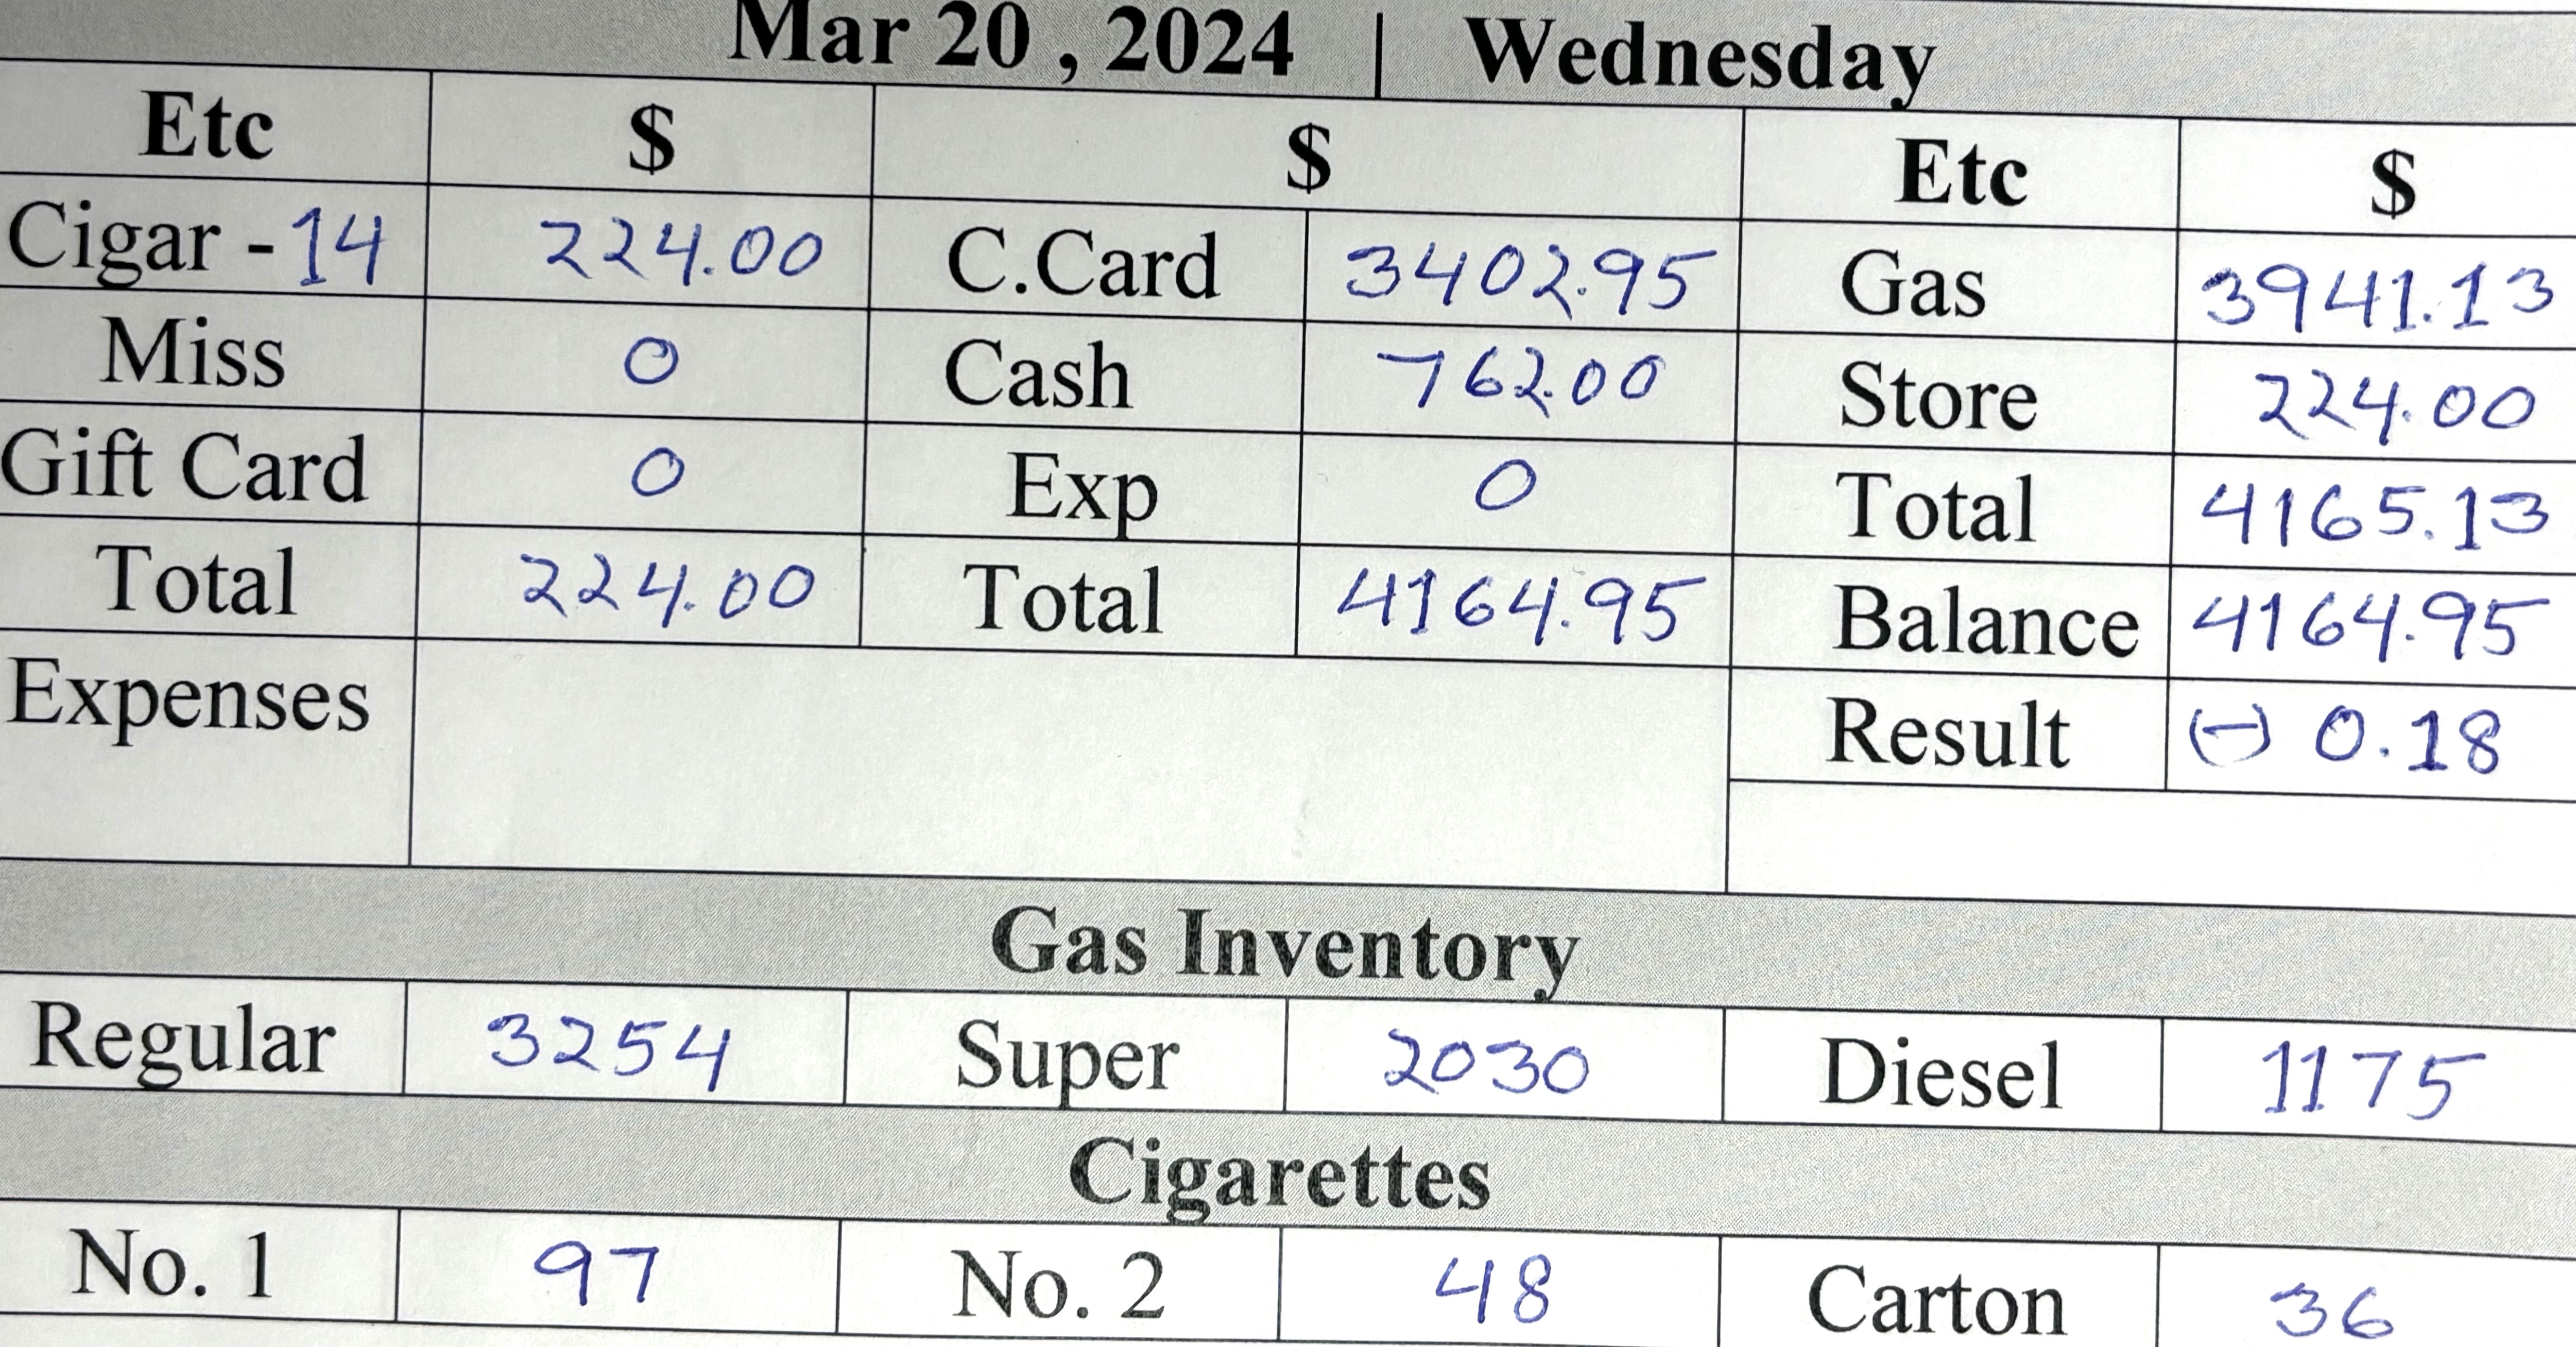 Mar 20 , 2024 | Wednesday
Etc $ $ Etc $
Cigar - 14 224.00 C.Card 3402.95 Gas 3941.13
Miss 0 Cash 762.00 Store 224.00
Gift Card 0 Exp 0 Total 4165.13
Total 224.00 Total 4164.95 Balance 4164.95
Expenses Result (-) 0.18
Gas Inventory
Regular 3254 Super 2030 Diesel 1175
Cigarettes
No. 1 97 No. 2 48 Carton 36